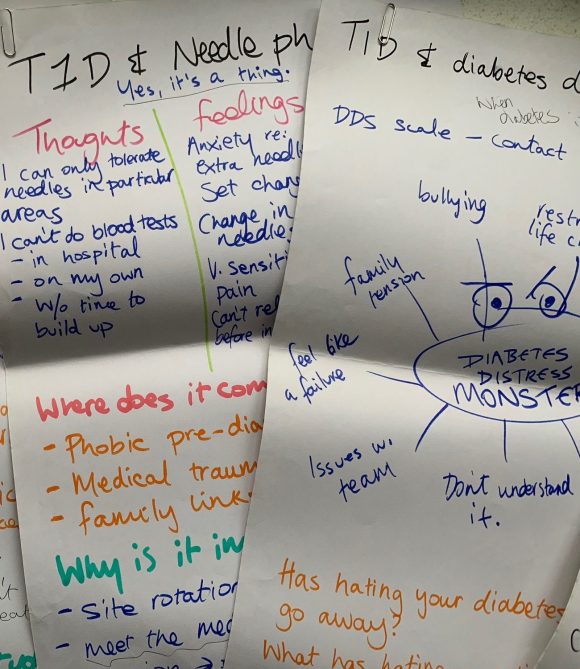 T1D & Needle ph
Yes, it's a thing.
Thoughts
I can only tolerate
needles in particular
areas
I can't do blood tests
- in hospital
- on my own
- w/o time to
build up
feelings
Anxiety re:
extra needl
Set chan
Change in
needle
V. sensiti
pain
Can't rel
before in
Where does it com
- Phobic pre-dia
- Medical traum
- family link
Why is it im
- Site rotation
- meet the med
T1D & diabetes d
When
diabetes i
DDS scale - contact
bullying
restr
life c
family
tension
feel like
a failure
DIABETES
DISTRESS
MONSTER
Issues w.
team
Don't understand
it.
Has hating your diabetes
go away?
What has hating